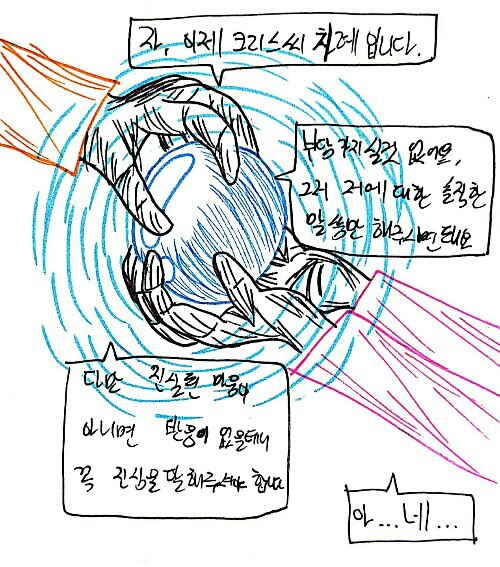 자, 이제 크리스씨 차례 입니다.
부담 가지실것 없어요,
그저 저에 대한 솔직한
말씀만 해주시면 돼요
다만 진실된 마음이
아니면 반응이 없을테니
꼭 진심을 말해주셔야 합니다
아...네...